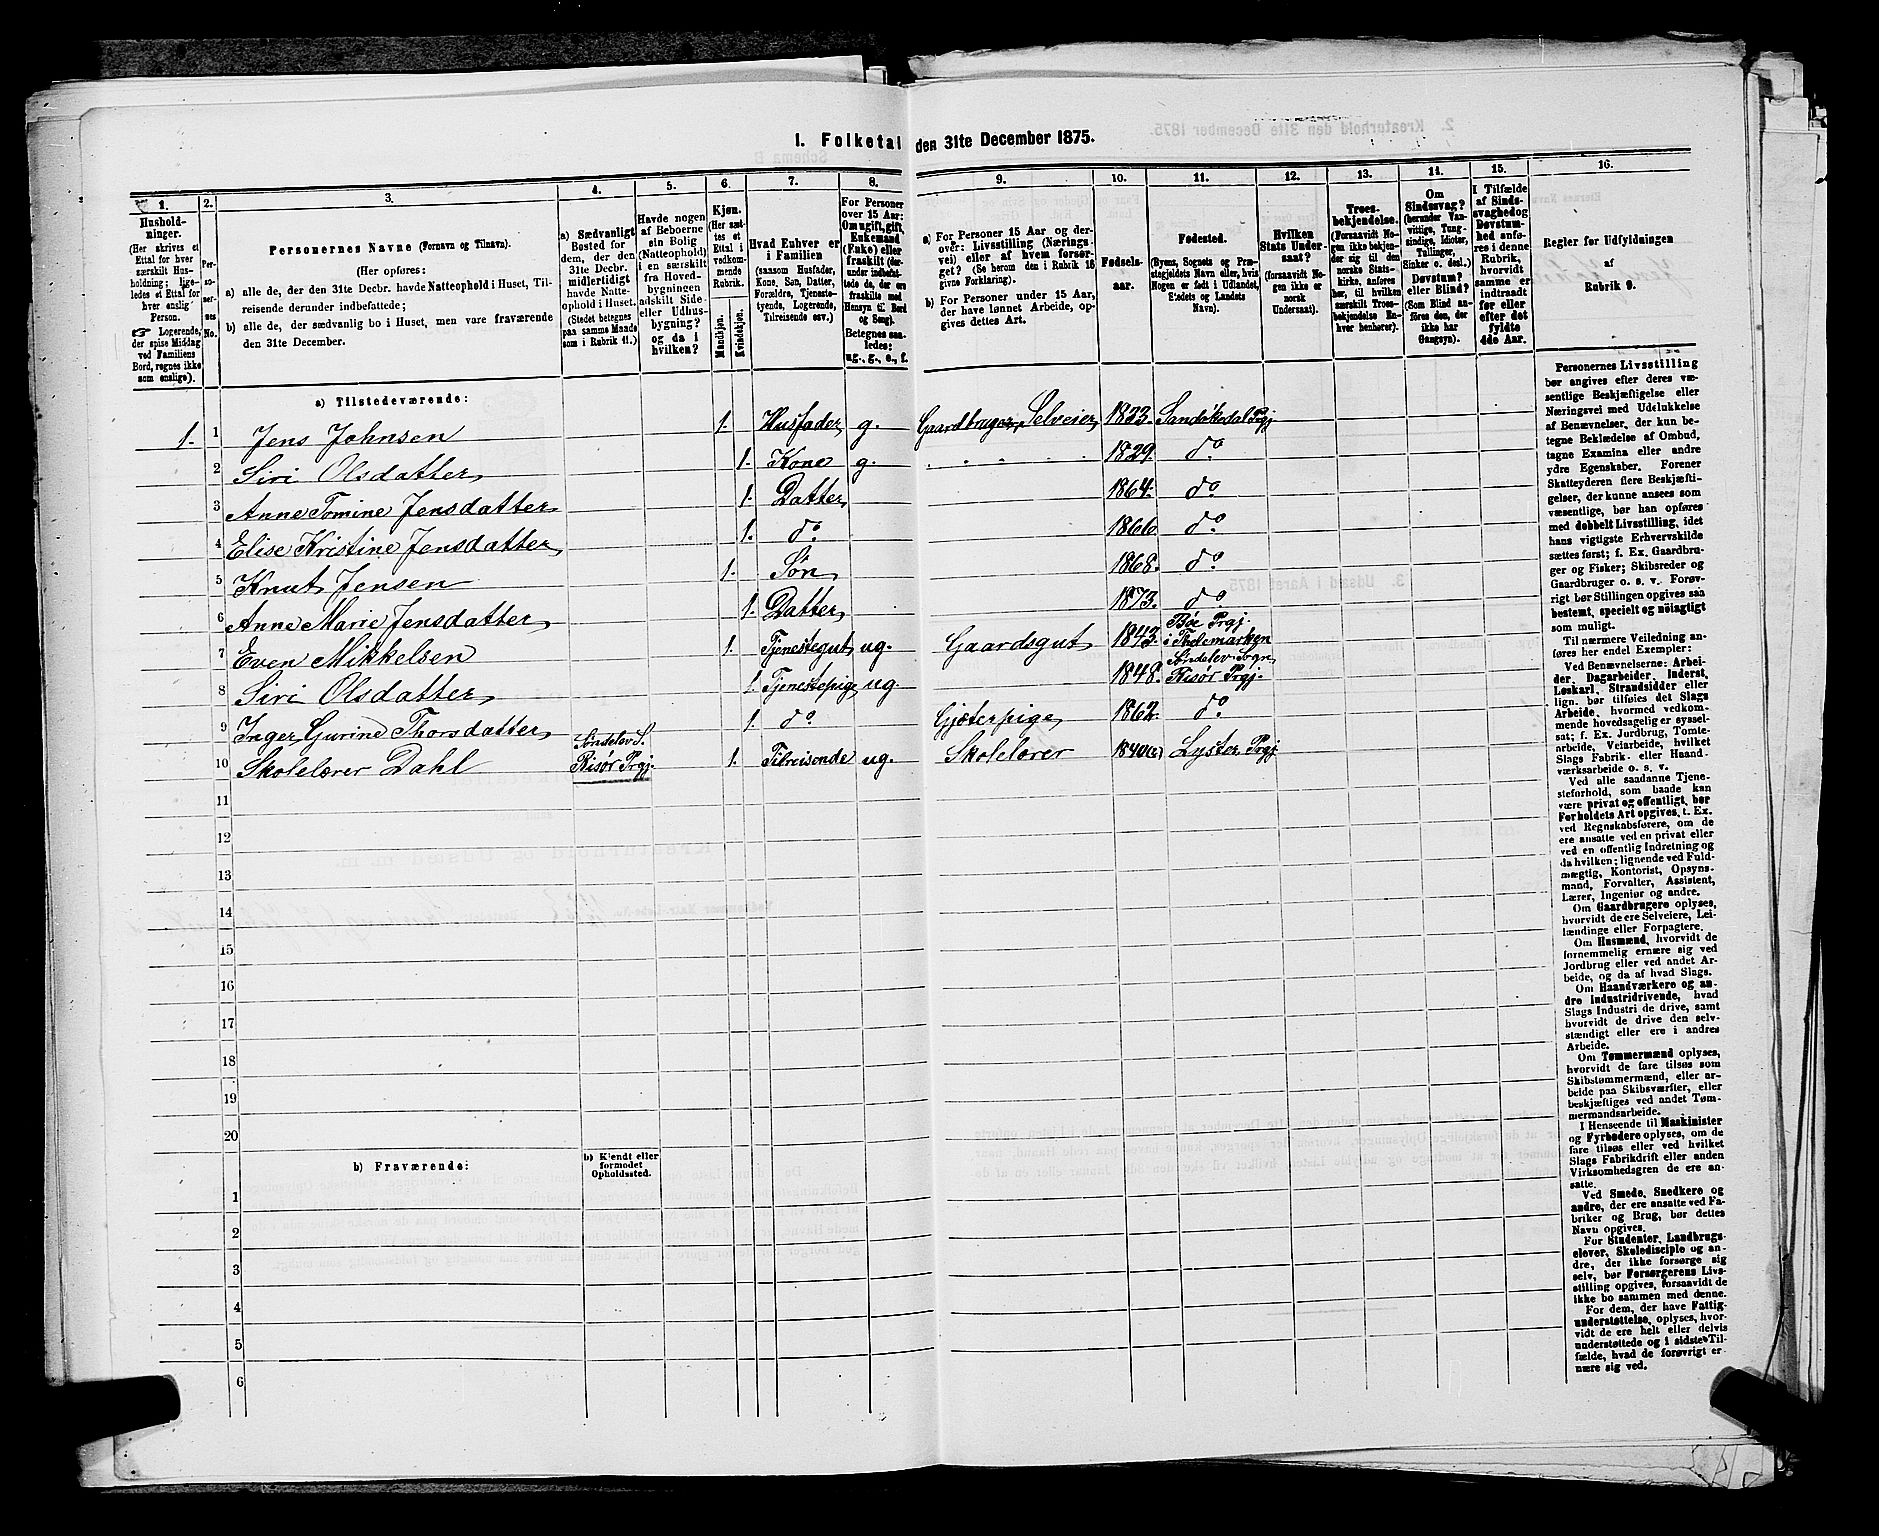 I. Folketal den 31te December 1875.
1.
Hushold-
ninger.
(Her skrives et
Ettal for hver
særskilt Hus-
holdning; lige-
ledes et Ettal for
hver enslig
Person.
☞ Logerende,
der spise Middag
ved Familiens
Bord, regnes ikke
som enslige).
2.
Per-
so-
ner-
nes
No.
3.
Personernes Navne (Fornavn og Tilnavn).
(Her opføres:
a) alle de, der den 31te Decbr. havde Natteophold i Huset, Til-
reisende derunder indbefattede;
b) alle de, der sædvanlig bo i Huset, men vare fraværende
den 31te December.
4.
a) Sædvanligt
Bosted for
dem, der den
31te Decbr.
midlertidigt
havde Natte-
ophold i Huset.
(Stedet betegnes
paa samme Maade
som i Rubrik 11.)
5.
Havde nogen
af Beboerne
sin Bolig
(Natteophold)
i en særskilt
fra Hoved-
bygningen
adskilt Side-
eller Udhus-
bygning?
og da i
hvilken?
6.
Kjøn.
(Her sæt-
tes et
Ettal i
vedkom-
mende
Rubrik.
Mandkjøn.
Kvindekjøn.
7.
Hvad Enhver er
i Familien
(saasom Husfader,
Kone, Søn, Datter,
Forældre, Tjeneste-
tyende, Logerende,
Tilreisende osv.)
8.
For Personer
over 15 Aar:
Om ugift, gift,
Enkemand
(Enke) eller
fraskilt (der-
under indbefat-
tede de, der ere
fraskilte med
Hensyn til Bord
og Seng).
Betegnes saa-
ledes:
ug., g., e., f.
9.
a) For Personer 15 Aar og der-
over: Livsstilling (Nærings-
vei) eller af hvem forsør-
get? (Se herom den i Rubrik 16
givne Forklaring).
b) For Personer under 15 Aar,
der have lønnet Arbeide, op-
gives dettes Art.
10.
Fødsels-
aar.
11.
Fødested.
(Byens, Sognets og Præ-
stegjeldets Navn eller, hvis
Nogen er født i Udlandet,
Stedets og Landets
Navn).
12.
Hvilken
Stats Under-
saat?
(forsaavidt No-
gen ikke er
norsk
Undersaat).
13.
Troes-
bekjendelse.
(Forsaavidt No-
gen ikke bekjen-
der sig til den
norske Stats-
kirke, anføres
her, til hvilken
særskilt Troes-
bekjendelse En-
hver henhører).
14.
Om
Sindssvag?
(herunder Van-
vittige, Tung-
sindige, Idioter,
Tullinger,
Sinker o. desl.)
Døvstum?
eller Blind?
(Som Blind an-
føres den, der
ikke har
Gangsyn).
15.
I Tilfælde
af Sinds-
svaghed og
Døvstum-
hed anfø-
res i denne
Rubrik,
hvorvidt
samme er
indtraadt
før eller
efter det
fyldte
4de Aar.
16.
Regler for Udfyldningen
af
Rubrik 9.
a) Tilstedeværende:
1. 1 Jens Johnsen 1. Husfader g. Gaardbruger, Selveier 1833. Sandøkedal Prgj
2 Siri Olsdatter 1. Kone g. 1829. do
3 Anne Tomine Jensdatter 1. Datter 1864. do
4 Elise Kristine Jensdatter 1. do 1866 do
5 Knut Jensen 1. Søn 1868. do
6 Anne Marie Jensdatter 1. Datter 1873. do
7 Even Mikkelsen 1. Tjenestegut ug. Gaardsgut 1843. Bøe Prgj. i Thelemarken
8 Siri Olsdatter 1. Tjenestepige ug. 1848. Søndelev Sogn Risør Prgj.
9 Inger Gurine Thorsdatter 1. do Gjæterpige 1862. do
10 Skolelærer Dahl Søndelev S. Risør Prgj. 1. Tilreisende ug. Skolelærer 1840 Lyster Prgj
11
12
13
14
15
16
17
18
19
20
b) Fraværende:
b) Kjendt eller
formodet
Opholdssted.
1
2
3
4
5
6
Personernes Livsstilling
bør angives efter deres væ-
sentlige Beskjæftigelse eller
Næringsvei med Udelukkelse
af Benævnelser, der kun be-
tegne Beklædelse af Ombud,
tagne Examina eller andre
ydre Egenskaber. Forener
Skatteyderen flere Beskjæfti-
gelser, der kunne ansees som
væsentlige, bør han opføres
med dobbelt Livsstilling, idet
hans vigtigste Erhvervskilde
sættes først; f. Ex. Gaardbru-
ger og Fisker; Skibsreder og
Gaardbruger o. s. v. Forøv-
rigt bør Stillingen opgives saa
bestemt, specielt og nøiagtigt
som muligt.
Til nærmere Veiledning an-
føres her endel Exempler:
Ved Benævnelserne: Arbei-
der, Dagarbeider, Inderst,
Løskarl, Strandsidder eller
lign. bør tilføies det Slags
Arbeide, hvormed vedkom-
mende hovedsagelig er syssel-
sat; f. Ex. Jordbrug, Tomte-
arbeide, Veiarbeide, hvilket
Slags Fabrik- eller Haand-
værksarbeide o. s. v.
Ved alle saadanne Tjene-
steforhold, som baade kan
være privat og offentligt, bør
Forholdets Art opgives, t. Ex.
ved Regnskabsførere, om de
ere ansatte ved en privat eller
ved en offentlig Indretning og
da hvilken; lignende ved Fuld-
mægtig, Kontorist, Opsyns-
mand, Forvalter, Assistent,
Lærer, Ingeniør og andre.
Om Gaardbrugere oplyses,
hvorvidt de ere Selveiere, Lei-
lændinge eller Forpagtere.
Om Husmænd, hvorvidt de
fornemmelig ernære sig ved
Jordbrug eller ved andet Ar-
beide, og da af hvad Slags.
Om Haandværkere og an-
dre Industridrivende, hvad
Slags Industri de drive, samt
hvorvidt de drive den selv-
stændigt eller ere i andres
Arbeide.
Om Tømmermænd oplyses,
hvorvidt de fare tilsøs som
Skibstømmermænd, eller ar-
beide paa Skibsværfter, eller
beskjæftiges ved andet Tøm-
mermandsarbeide.
I Henseende til Maskinister
og Fyrbødere oplyses, om de
fare tilsøs eller ved hvilket
Slags Fabrikdrift eller anden
Virksomhedsgren de ere an-
satte.
Ved Smede, Snedkere og
andre, der ere ansatte ved Fa-
briker og Brug, bør dettes
Navn opgives.
For Studenter, Landbrugs-
elever, Skoledisciple og an-
dre, der ikke forsørge sig
selv, bør Forsørgerens Livs-
stilling opgives, forsaavidt de
ikke bo sammen med denne.
For dem, der have Fattig-
understøttelse, oplyses, hvor-
vidt de ere helt eller delvis
understøttede og i sidste Til-
fælde, hvad de forøvrigt er-
nære sig ved.